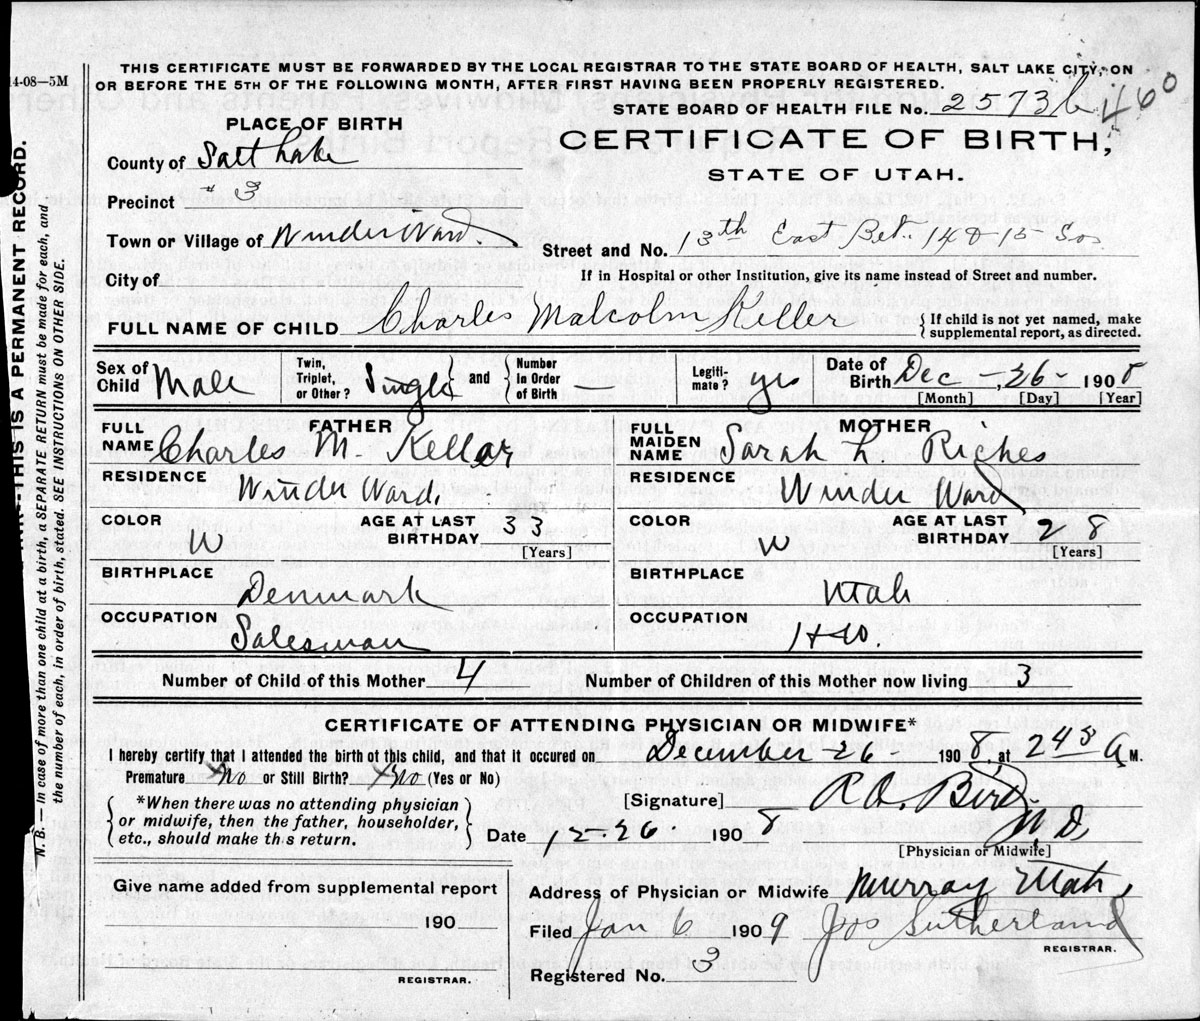 14-08—5M
THIS CERTIFICATE MUST BE FORWARDED BY THE LOCAL REGISTRAR TO THE STATE BOARD OF HEALTH, SALT LAKE CITY, ON
OR BEFORE THE 5TH OF THE FOLLOWING MONTH, AFTER FIRST HAVING BEEN PROPERLY REGISTERED.
STATE BOARD OF HEALTH FILE No. 2573 460
PLACE OF BIRTH
CERTIFICATE OF BIRTH,
STATE OF UTAH.
County of Salt Lake
Precinct # 3
Town or Village of Winder Ward.
Street and No. 13th East Bet. 14 & 15 So
City of
If in Hospital or other Institution, give its name instead of Street and number.
FULL NAME OF CHILD Charles Malcolm Keller
{ If child is not yet named, make supplemental report, as directed.
Sex of Child Male
Twin, Triplet, or Other? Single } and { Number in Order of Birth —
Legiti-mate? yes
Date of Birth Dec — 26 - 1908
[Month] [Day] [Year]
FATHER
FULL NAME Charles M. Kellar
RESIDENCE Winder Ward.
COLOR W
AGE AT LAST BIRTHDAY 33
[Years]
BIRTHPLACE Denmark
OCCUPATION Salesman
MOTHER
FULL MAIDEN NAME Sarah L Riches
RESIDENCE Winder Ward
COLOR W
AGE AT LAST BIRTHDAY 28
[Years]
BIRTHPLACE Utah
OCCUPATION
Number of Child of this Mother 4
Number of Children of this Mother now living 3
CERTIFICATE OF ATTENDING PHYSICIAN OR MIDWIFE*
I hereby certify that I attended the birth of this child, and that it occured on December - 26 - 1908, at 2 45 A M.
Premature No or Still Birth? No (Yes or No)
{ *When there was no attending physician
or midwife, then the father, householder,
etc., should make this return. }
[Signature] R. A. Bird M D,
[Physician or Midwife]
Date 12-26. 1908
Address of Physician or Midwife Murray Utah,
Give name added from supplemental report
190
REGISTRAR.
Filed Jan 6 1909 Jos Sutherland
REGISTRAR.
Registered No. 3
THIS IS A PERMANENT RECORD.
N. B.—In case of more than one child at a birth, a SEPARATE RETURN must be made for each, and
the number of each, in order of birth, stated. SEE INSTRUCTIONS ON OTHER SIDE.